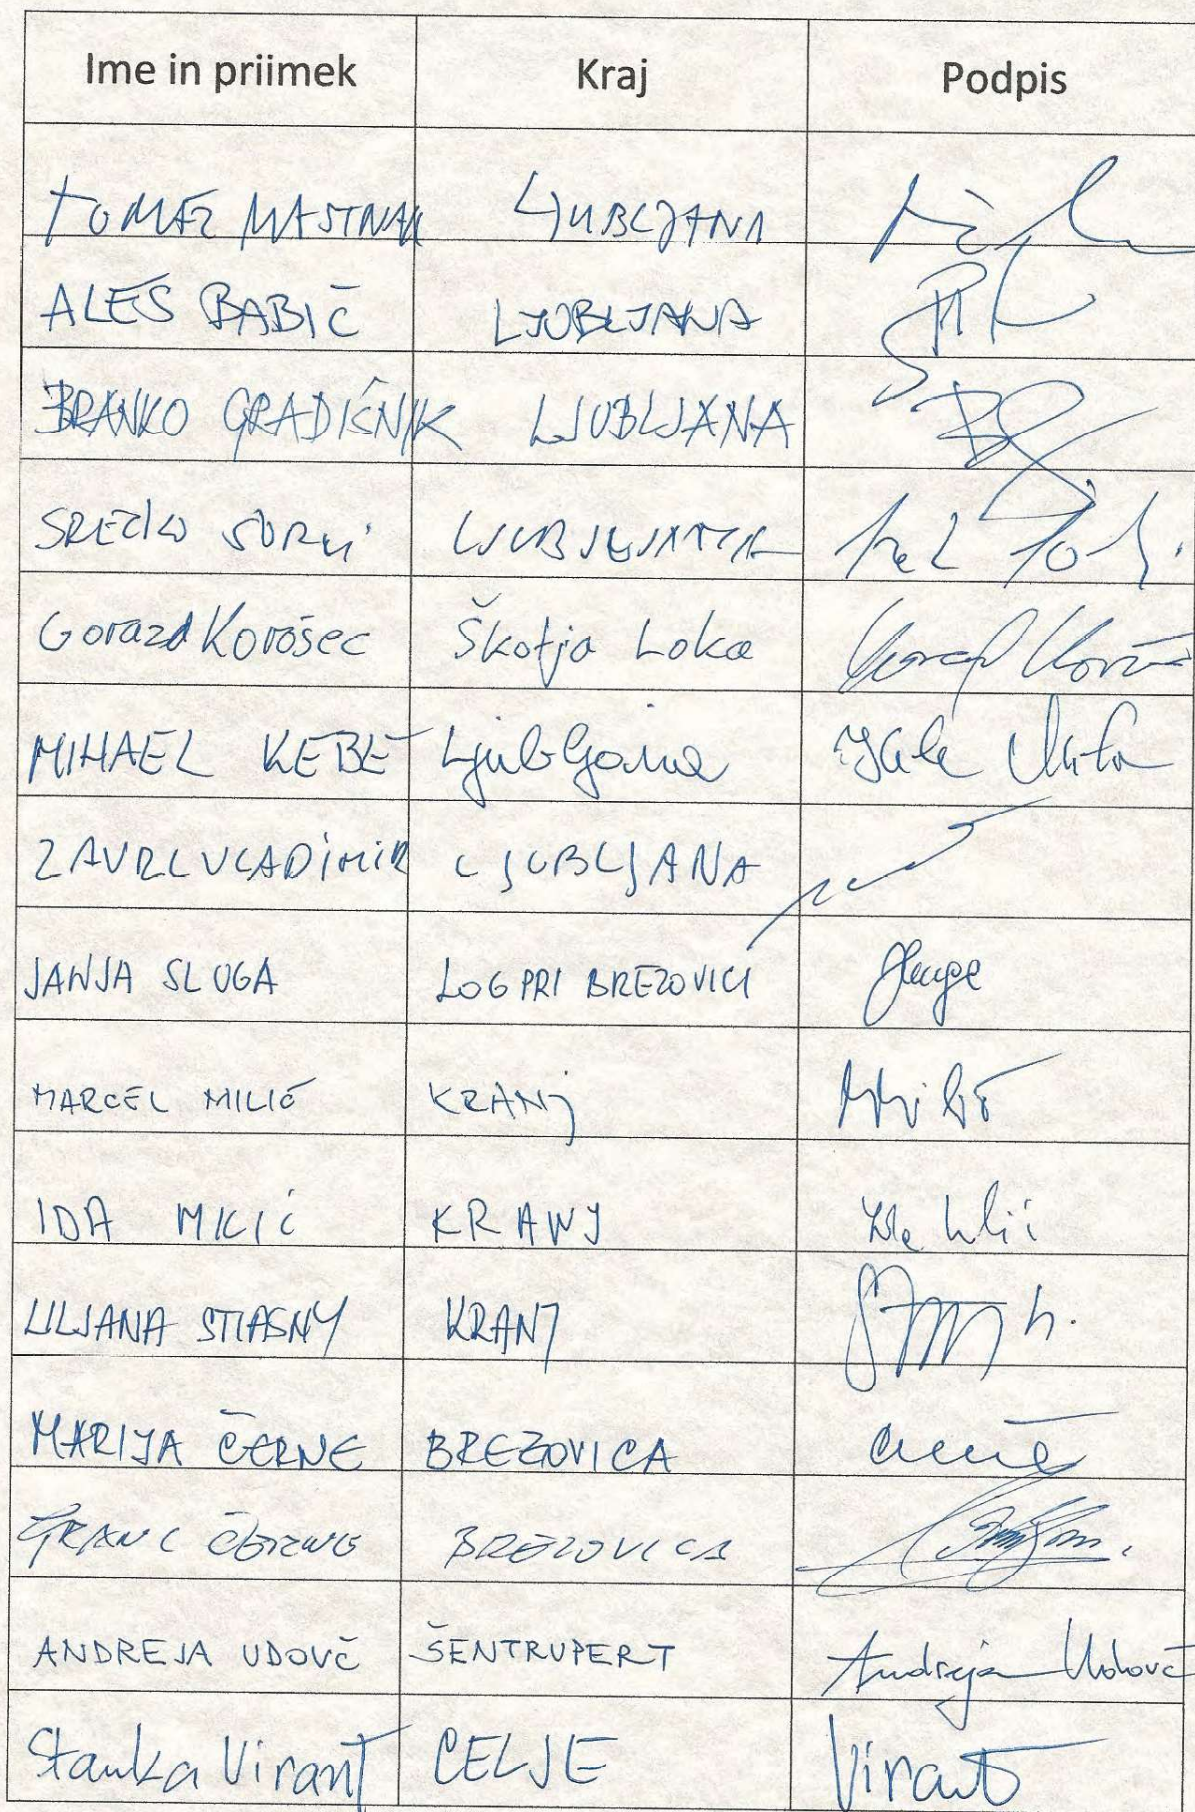 Ime in priimek Kraj Podpis
TOMAŽ MASTNAK LJUBLJANA
ALEŠ BABIČ LJUBLJANA
BRANKO GRADIŠNIK LJUBLJANA
SREČKO LJUBLJANA
Gorazd Korošec Škofja Loka Gorazd Korošec
MIHAEL KEBE Ljubljana
ZAVRL VLADIMIR LJUBLJANA
JANJA SLUGA LOG PRI BREZOVICI Sluga
MARCEL MILIĆ KRANJ
IDA MILIĆ KRANJ
LILJANA STIASNY KRANJ
MARIJA ČERNE BREZOVICA
FRANC ČERNE BREZOVICA
ANDREJA UDOVČ ŠENTRUPERT Andreja Udovč
Stanka Virant CELJE Virant